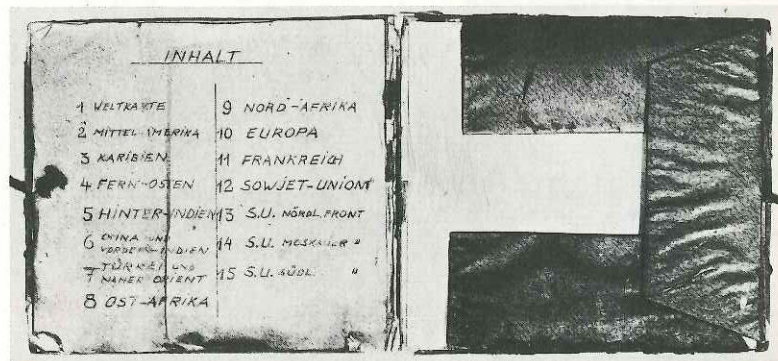 INHALT
1 WELTKARTE
2 MITTEL-AMERIKA
3 KARIBIEN
4 FERN-OSTEN
5 HINTER-INDIEN
6 CHINA UND
VORDER-INDIEN
7 TÜRKEI UND
NAHER ORIENT
8 OST-AFRIKA
9 NORD-AFRIKA
10 EUROPA
11 FRANKREICH
12 SOWJET-UNION
13 S.U. NÖRDL. FRONT
14 S.U. MOSKAUER "
15 S.U. SÜDL. "